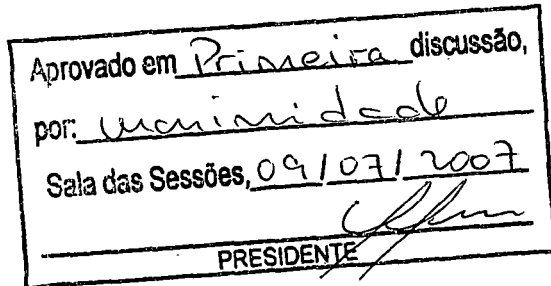 Aprovado em Primeira discussão,
por: unanimidade
Sala das Sessões, 09/07/2007
PRESIDENTE